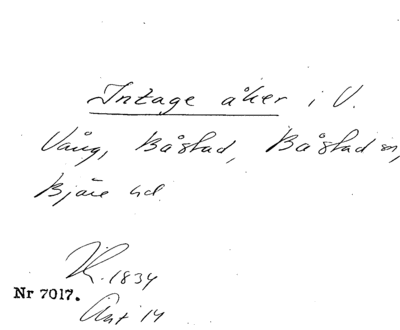 Intage åker i V.
Vång, Båstad, Båstad sn,
Bjäre hd.
K. 1834
Nr 7017.
Akt 14